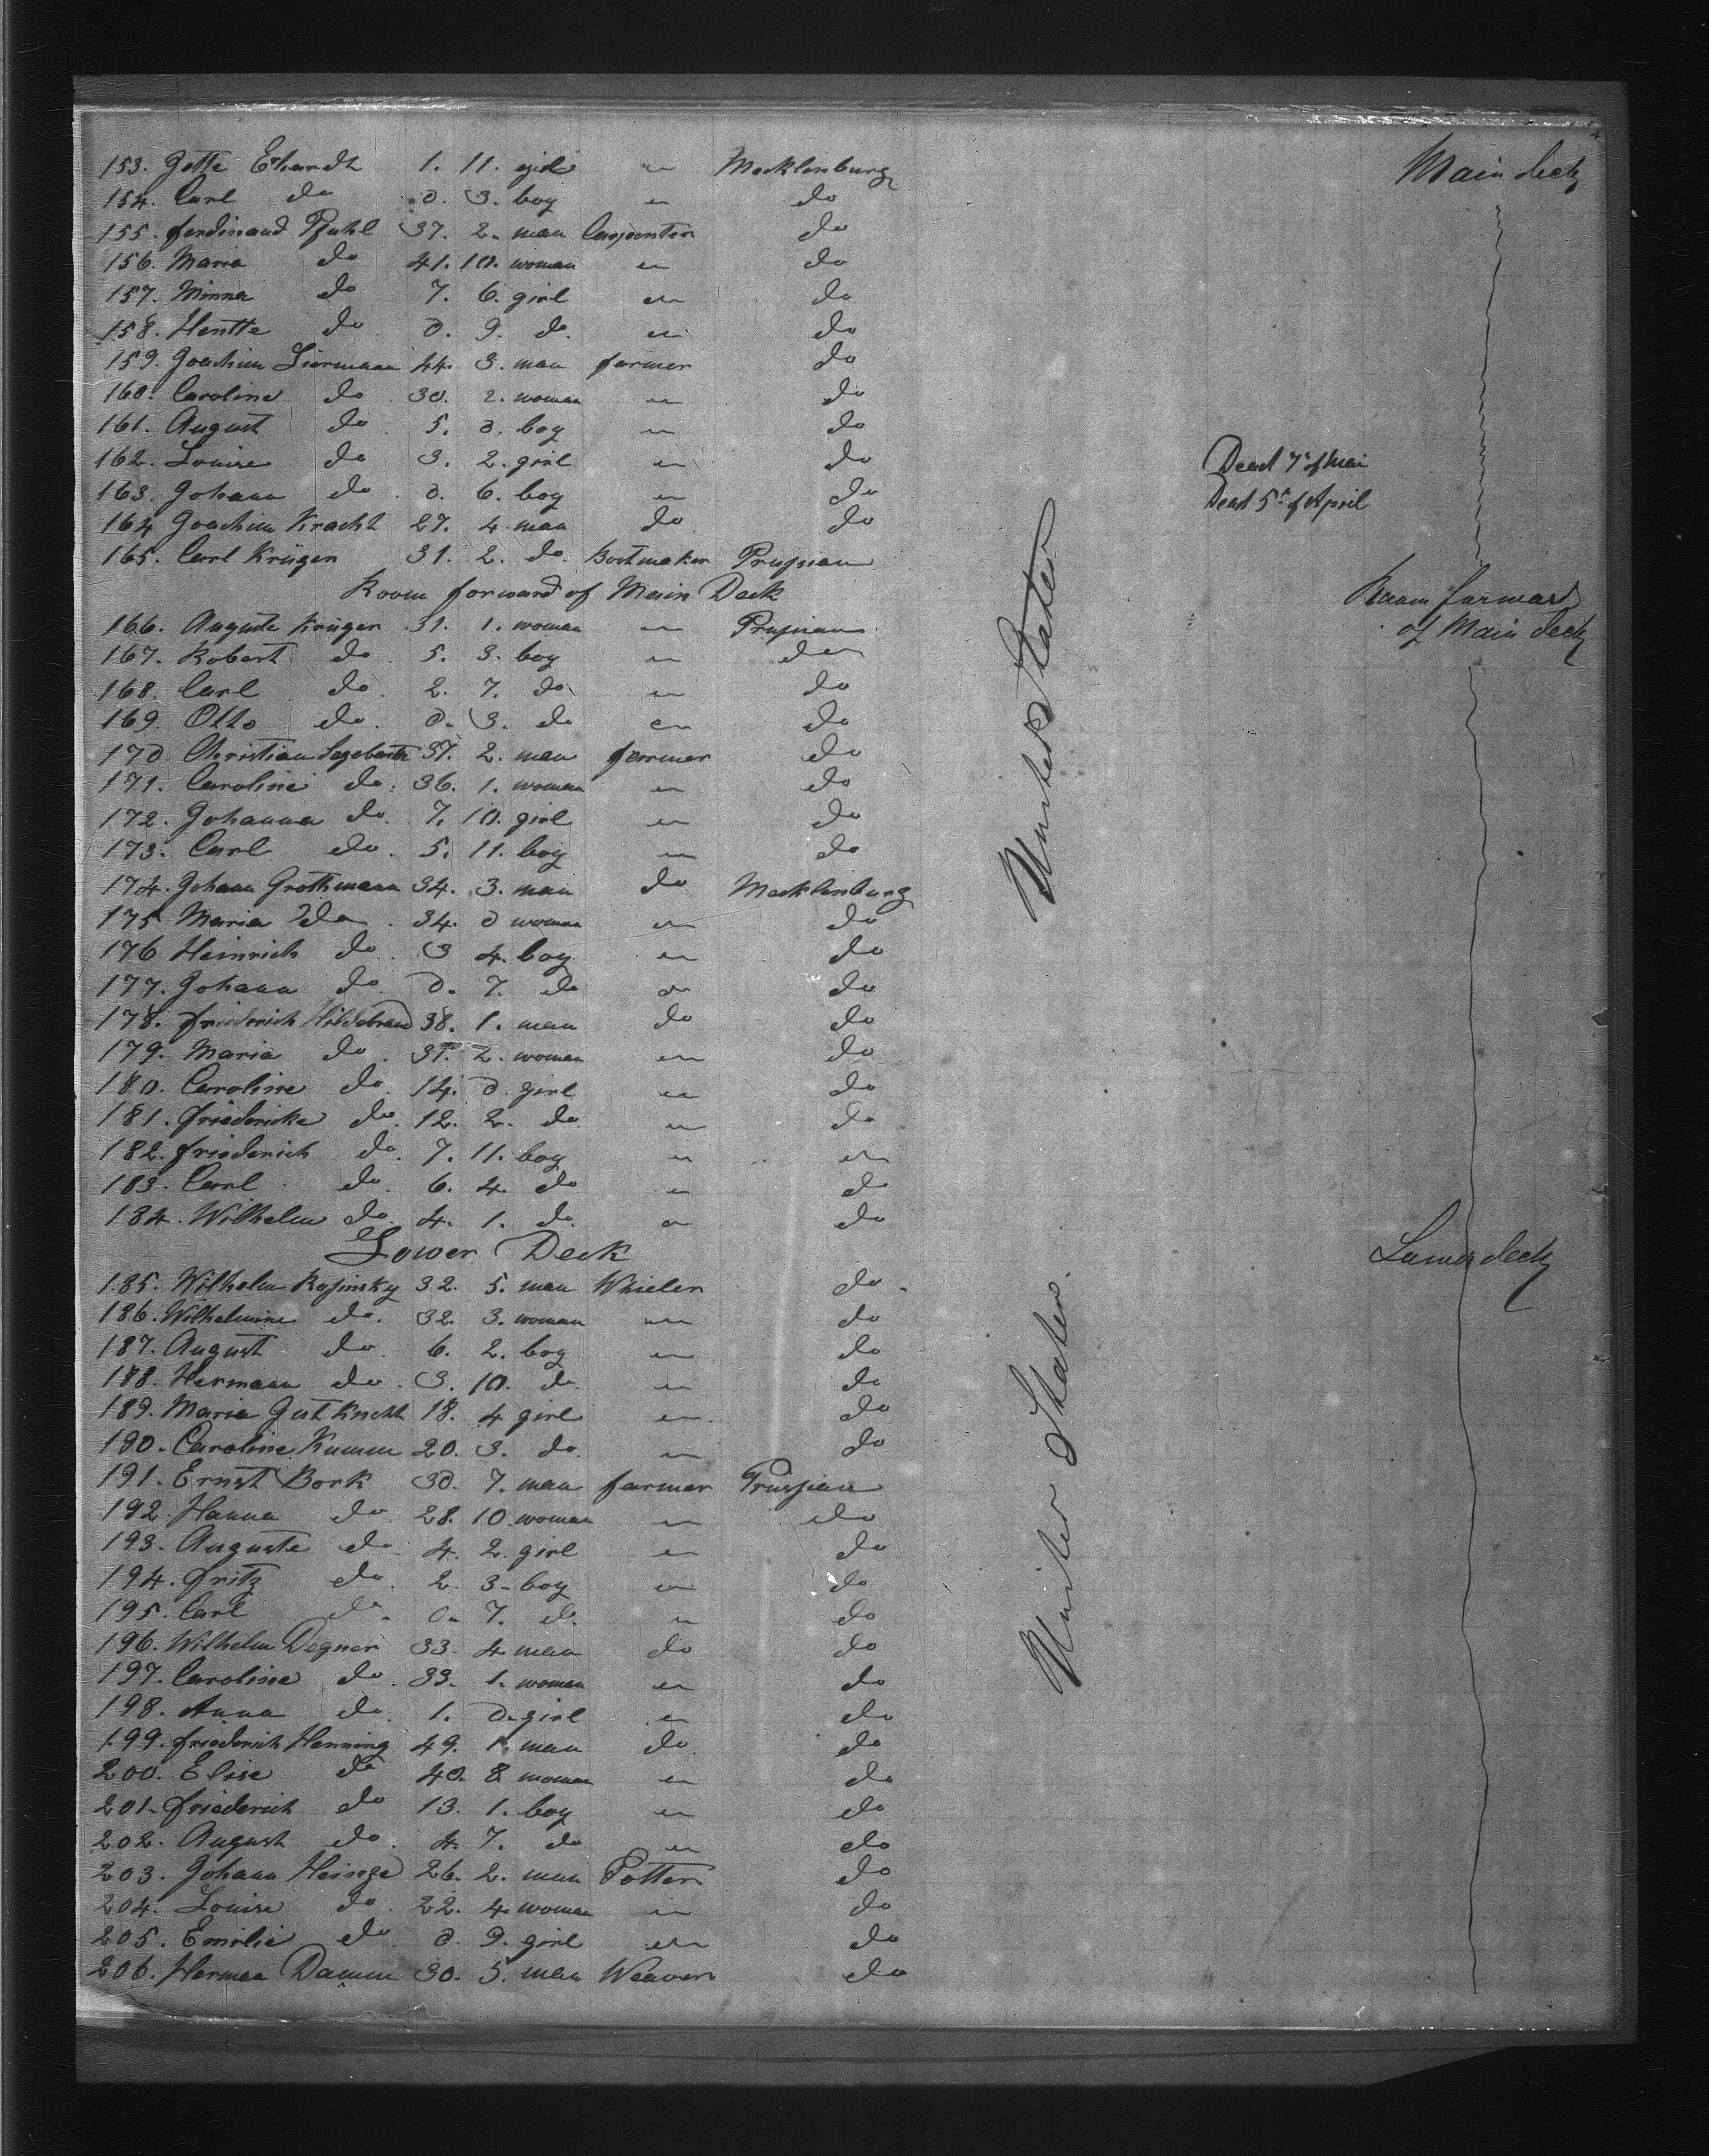 153. Jette Ehardt 1. 11. girl " Mecklenburg Main deck
154. Carl do 0. 3. boy " do
155. Ferdinand Pfuhl 37. 2. man Carpenter do
156. Maria do 41. 10. woman " do
157. Minna do 7. 6. girl " do
158. Hentte do 0. 9. do " do
159. Joachim Liermann 44. 3. man farmer do
160. Caroline do 30. 2. woman " do
161. August do 5. 0. boy " do
162. Louise do 3. 2. girl " do Dead 7th of Mai
163. Johann do 0. 6. boy " do Dead 5th of April
164 Joachim Kracht 27. 4. man do do
165. Carl Krüger 31. 2. do Bootmaker Prussian
Room forward of Main Deck Raam forward
166. Auguste Krüger 31. 1. woman " Prussian of Main deck
167. Robert do 5. 3. boy " do
168. Carl do 2. 7. do " do
169. Otto do 0. 3. do " do
170 Christian 37. 2. man farmer do
171. Caroline do 36. 1. woman " do
172. Johanna do 7. 10. girl " do
173. Carl do 5. 11. boy " do
United States
174. Johann Grothmann 34. 3. man do Mecklenburg
175 Maria do 34. 0 woman " do
176 Heinrich do 3 4. boy " do
177. Johann do 0. 7. do " do
178. Friederich Hildebrand 38. 1. man do do
179. Maria do 37. 2. woman " do
180. Caroline do 14. 0. girl " do
181. Friedericke do 12. 2. do " do
182. Friederich do 7. 11. boy " "
183. Carl do 6. 4. do " do
184. Wilhelm do 4. 1. do " do
Lower Deck Lower deck
185. Wilhelm Rossinsky 32. 5. man Whieler do
186. Wilhelmine do 32. 3. woman " do
187. August do 6. 2. boy " do
188. Hermann do 3. 10. do " do
189. Maria Gutknecht 18. 4 girl " do
190. Caroline Kumm 20. 3. do " do
191. Ernst Bork 30. 7. man farmer Prussian
192. Hanna do 28. 10 woman " do
193. Auguste do 4. 2. girl " do
194. Fritz do 2. 3 boy " do
195. Carl do 0. 7. do " do
196. Wilhelm Degner 33. 4 man do do
United States
197. Caroline do 33. 1. woman " do
198. Anna do 1. 0. girl " do
199. Friederich Henning 49. 1. man do do
200. Elise do 40. 8 woman " do
201. Friederich do 13. 1. boy " do
202. August do 4. 7. do " do
203. Johann Heinze 26. 2. man Potter do
204. Louise do 22. 4 woman " do
205. Emilie do 0. 9. girl " do
206. Herman Damm 30. 5. man Weaver do